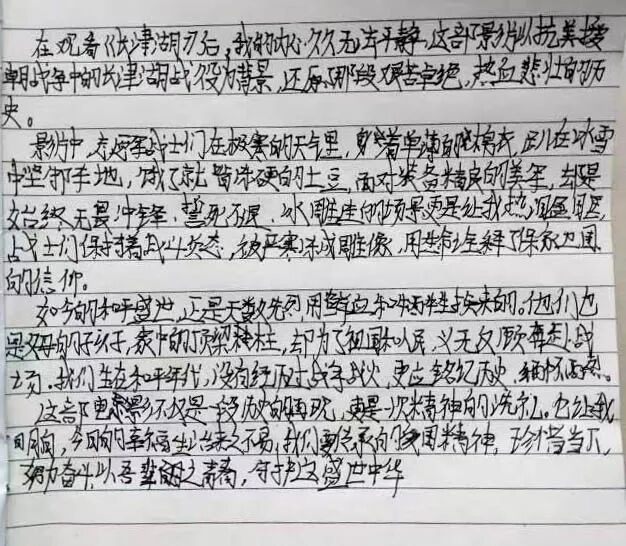 在观看《长津湖》后，我的内心久久无法平静，这部影片以抗美援
朝战争中的长津湖战役为背景，还原了那段艰苦卓绝，热血悲壮的历
史。
影片中，志愿军战士们在极寒的天气里，身着单薄的棉衣，趴在冰雪
中坚守阵地，饿了就啃冻硬的土豆，面对装备精良的美军，却是
始终无畏冲锋，誓死不退，冰雕连的场景更是让我热泪盈眶，
战士们保持着战斗姿态，被严寒冻成雕像，用生命诠释了保家卫国
的信仰。
如今的和平盛世，正是无数先烈用鲜血和牺牲换来的。他们也
是父母的孩子，家中的顶梁柱，却为了祖国和人民，义无反顾奔赴战
场。我们生在和平年代，没有经历过战争战火，更应铭记历史，缅怀先烈。
这部电影不仅是一段历史的再现，更是一次精神的洗礼，也让我
明白，今日的幸福生活来之不易，我们要传承爱国精神，珍惜当下，
努力奋斗，以吾辈之青春，守护这盛世中华